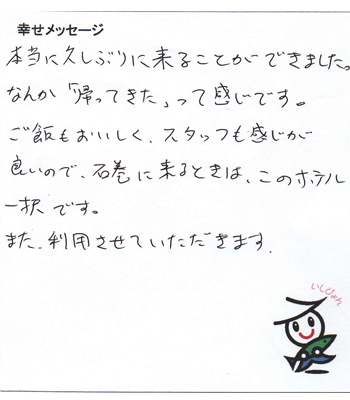 幸せメッセージ
本当に久しぶりに来ることができました。
なんか「帰ってきた」って感じです。
ご飯もおいしく、スタッフも感じが
良いので、石巻に来るときは、このホテル
一択です。
また、利用させていただきます.
いしぴょん